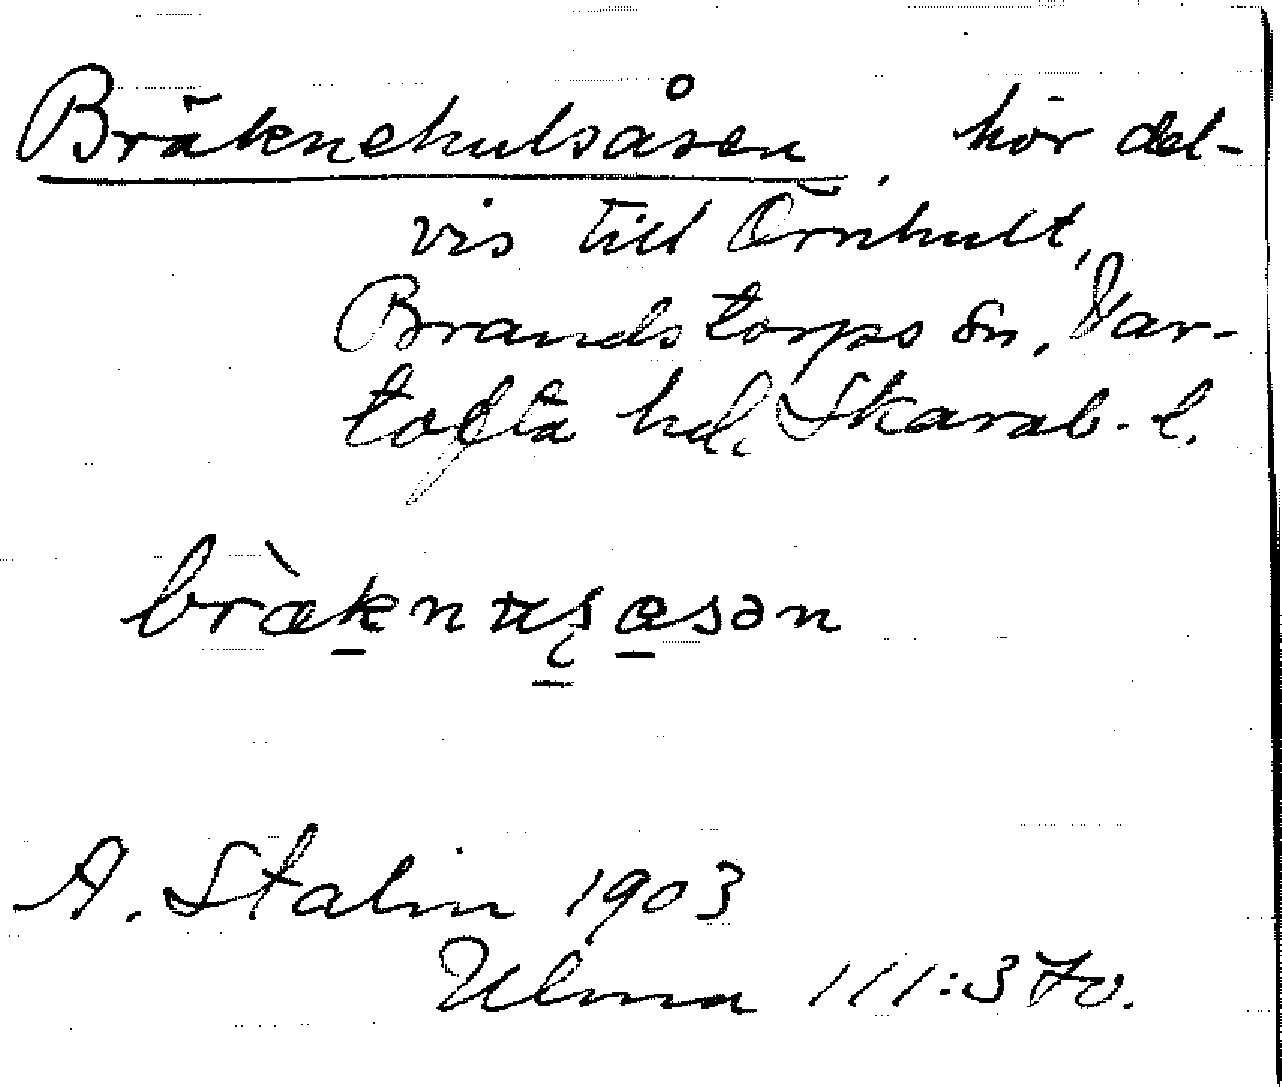 Bräknehulsåsen, hör del-
vis till Örnhult,
Brandstorps sn, Var-
tofta hd, Skarab. l.
A. Stalin 1903
Ulma 111:370.